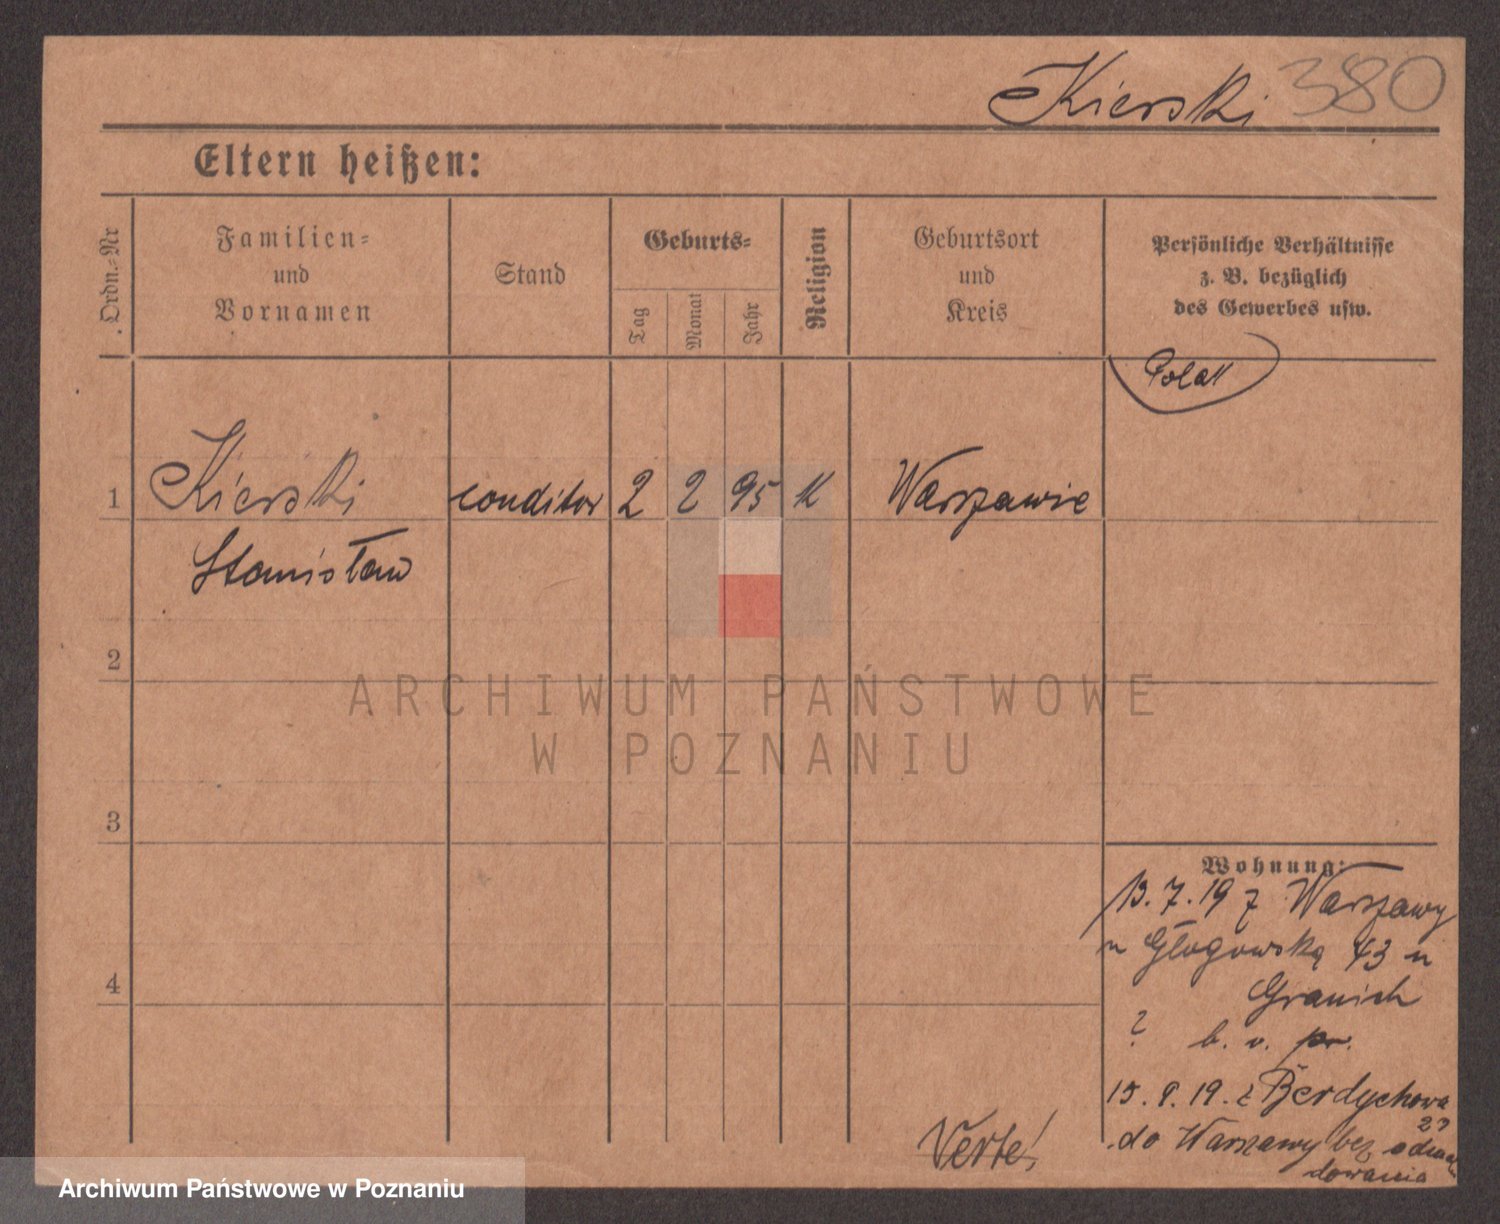 Kierski 380
Eltern heißen:
Ordn.-Nr
Familien-
und
Vornamen
Stand
Geburts-
Tag
Monat
Jahr
Religion
Geburtsort
und
Kreis
Persönliche Verhältnisse
z. B. bezüglich
des Gewerbes usw.
Polak
1 Kierski conditor 2 2 95 K Warszawie
Stanisław
2
ARCHIWUM PAŃSTWOWE
W POZNANIU
3
Wohnung:
13.7.19 z Warszawy
Głogowską 43 u
4
?
b. v. pr.
15.9.19. z Berdychowa
23
do Warszawy bez odmel
dowania
Verte!
Archiwum Państwowe w Poznaniu